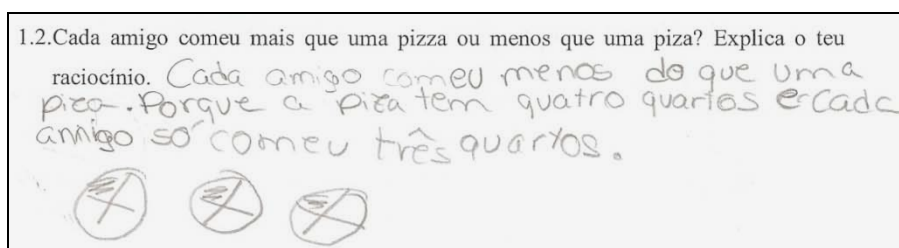 1.2.Cada amigo comeu mais que uma pizza ou menos que uma piza? Explica o teu
raciocínio. Cada amigo comeu menos do que uma
piza. Porque a piza tem quatro quartos e cada
amigo só comeu três quartos.